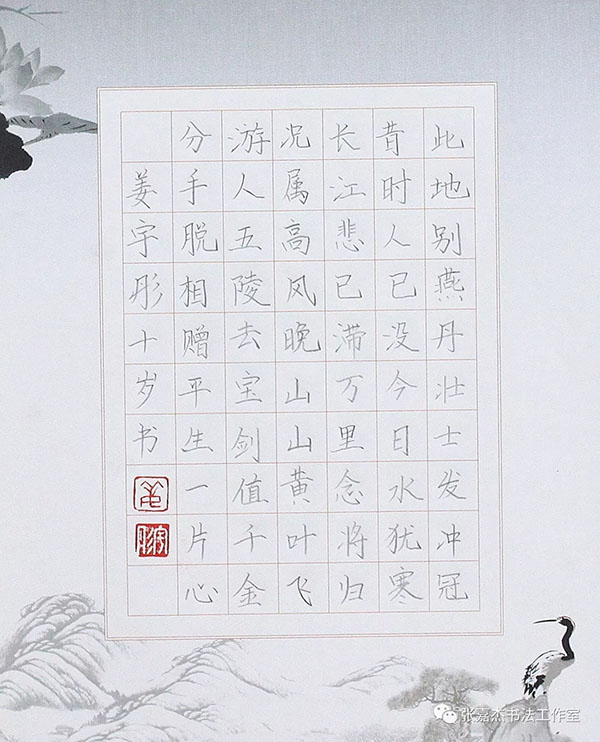 此地别燕丹壮士发冲冠
昔时人已没今日水犹寒
长江悲已滞万里念将归
况属高风晚山山黄叶飞
游人五陵去宝剑值千金
分手脱相赠平生一片心
姜宇彤十岁书
张嘉杰书法工作室